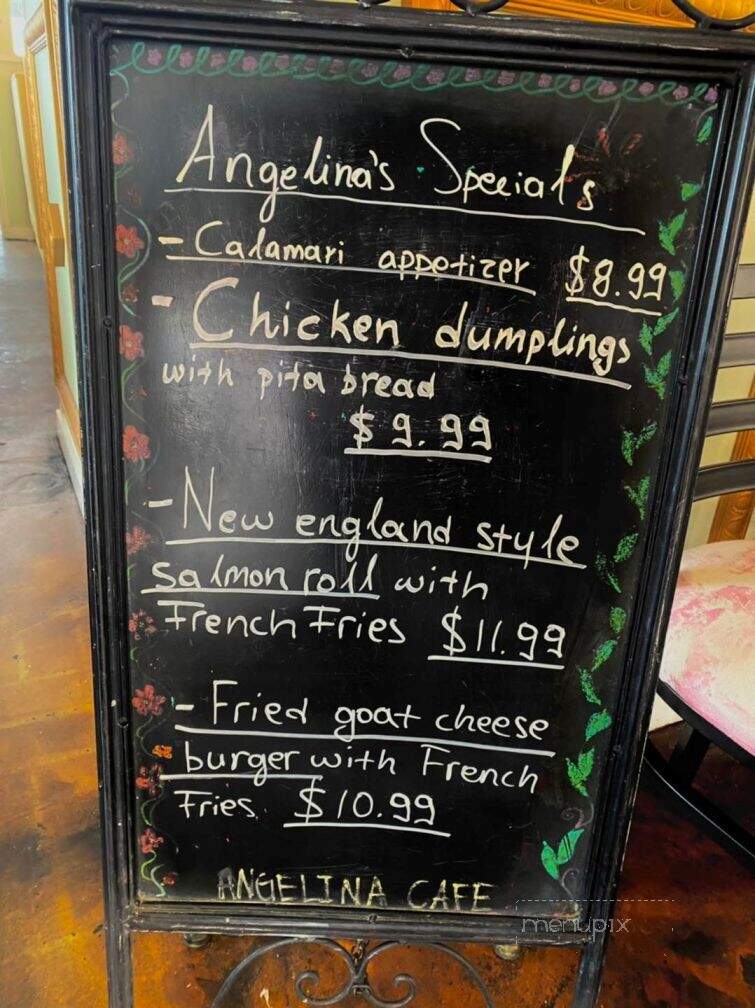 Angelina's Specials
- Calamari appetizer $8.99
- Chicken dumplings
with pita bread
$9.99
- New england style
salmon roll with
French Fries $11.99
- Fried goat cheese
burger with French
Fries. $10.99
ANGELINA CAFE
menupix